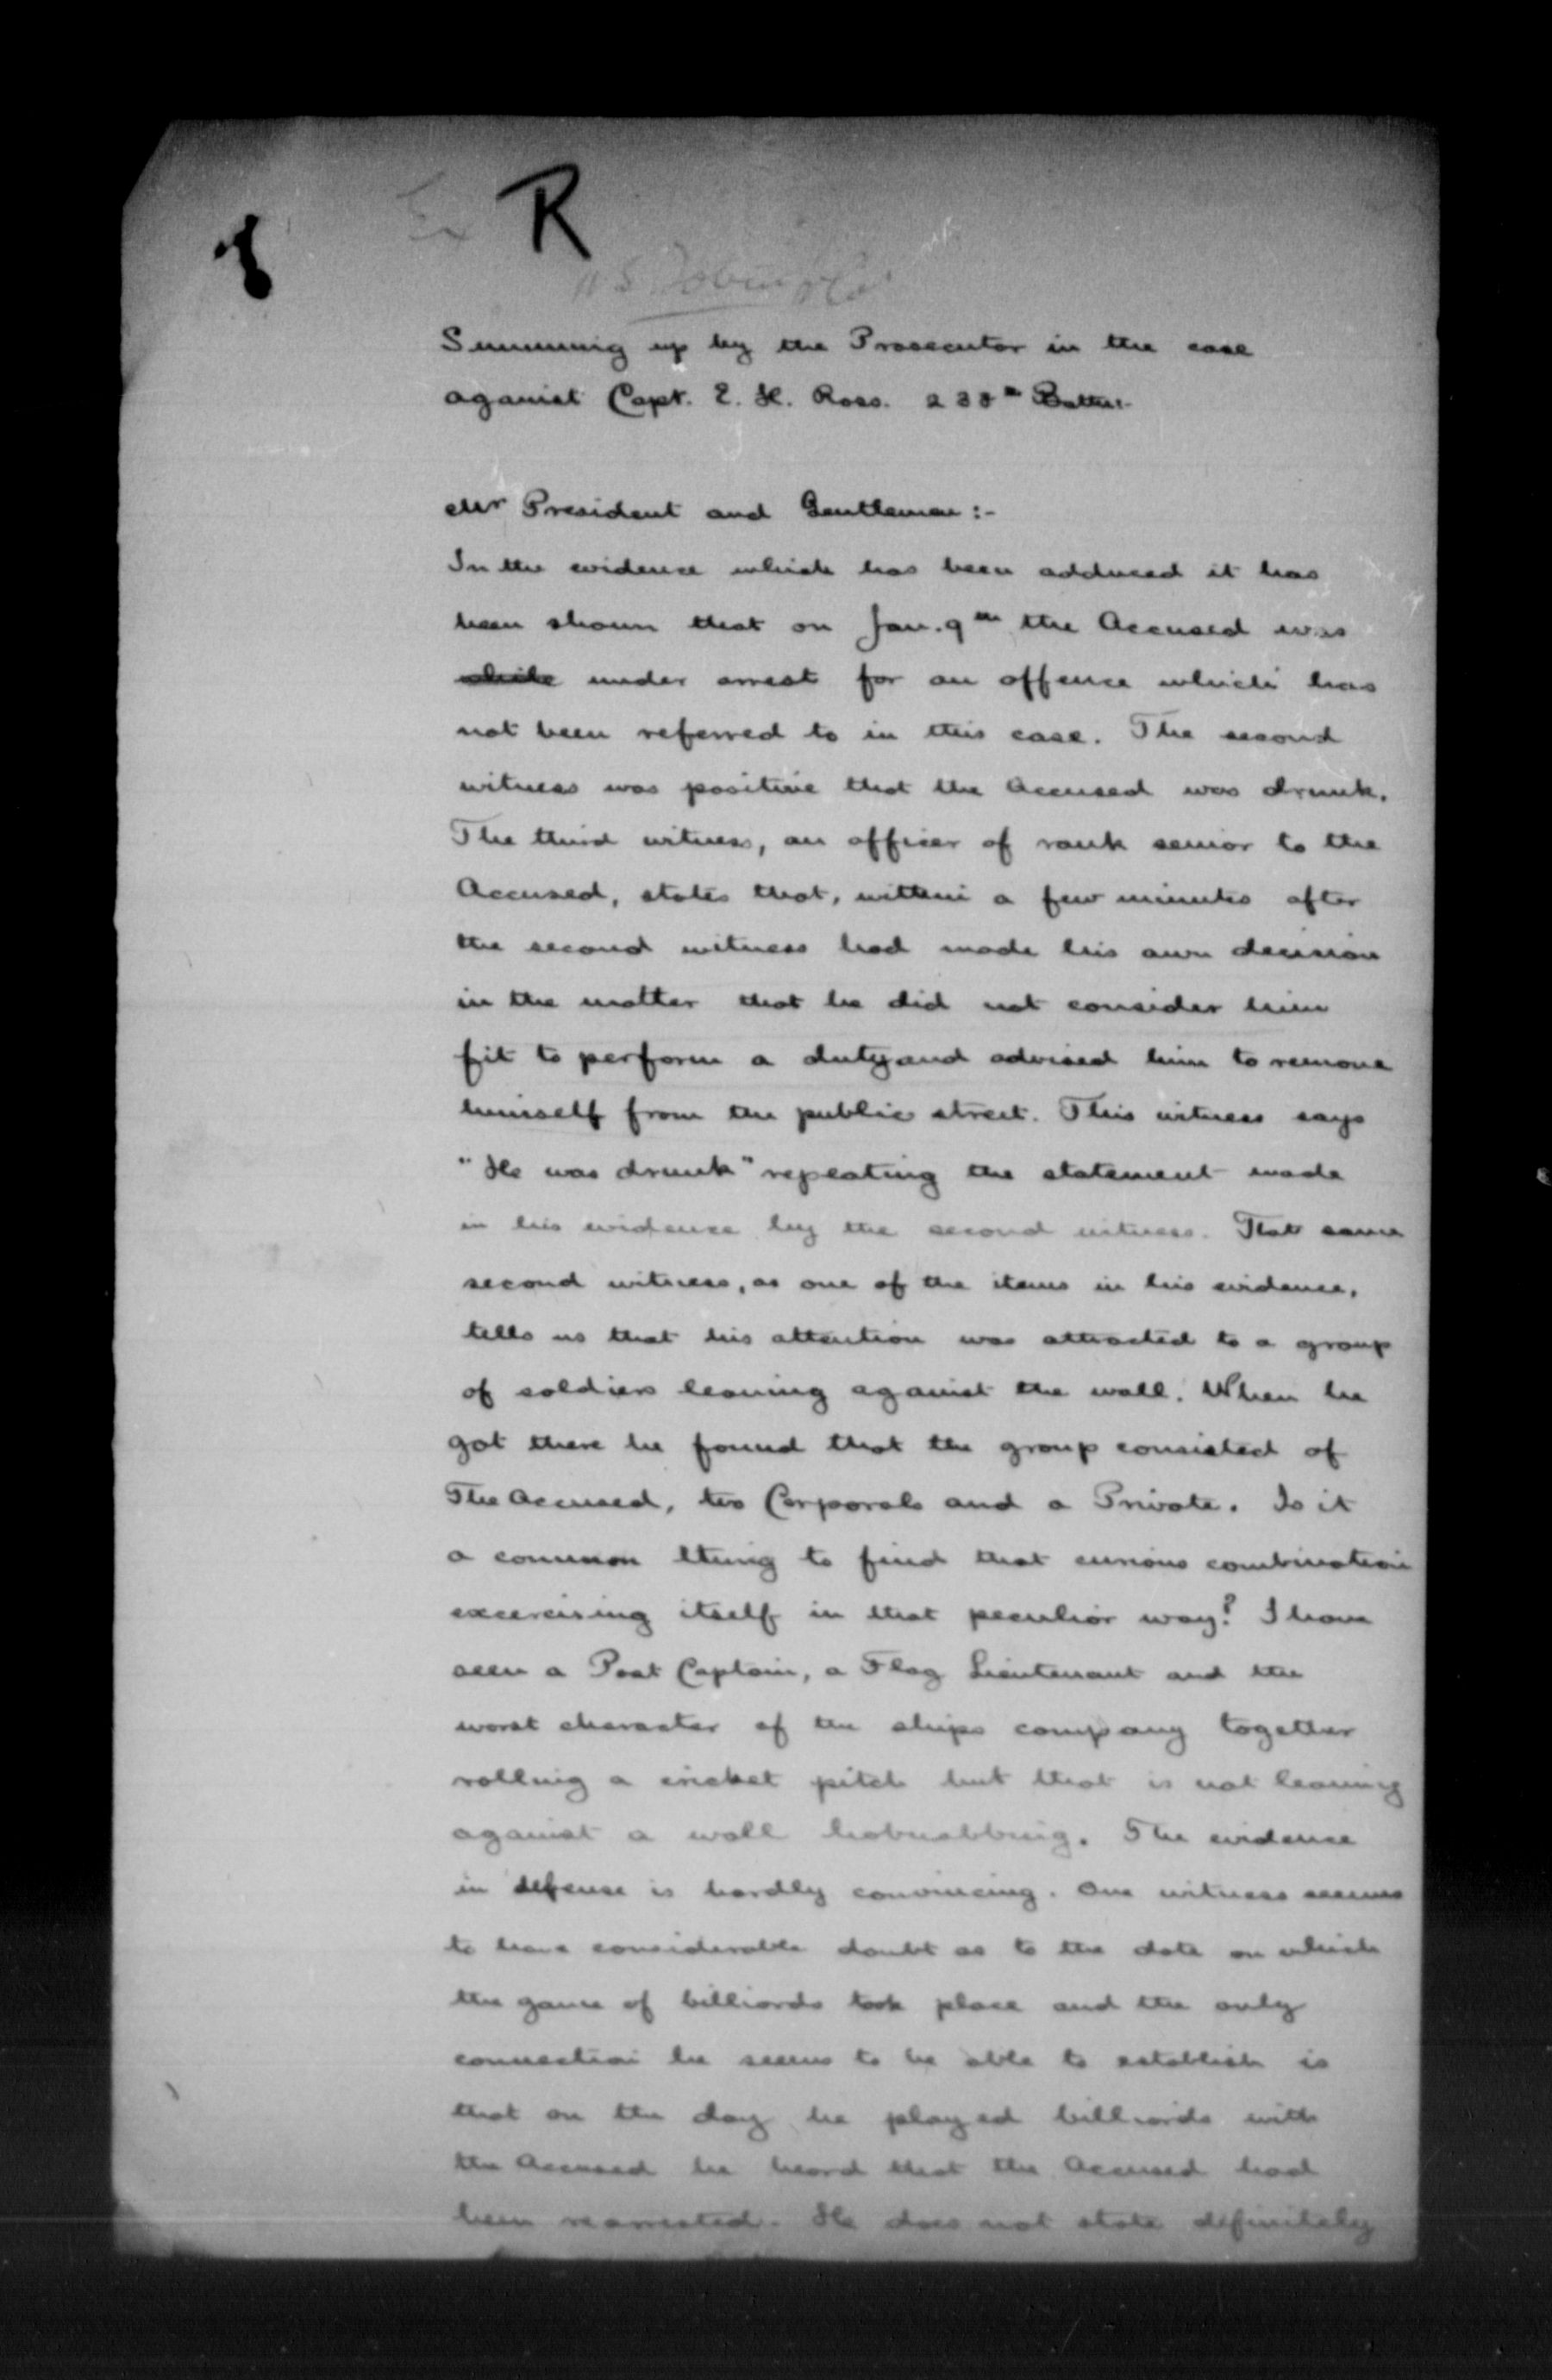 Ex R
Summing up by the Prosecutor in the case
against Capt. E. H. Ross. 238th Battn.
Mr President and Gentlemen :-
In the evidence which has been adduced it has
been shown that on Jan. 9th the Accused was
under arrest for an offence which has
not been referred to in this case. The second
witness was positive that the Accused was drunk.
The third witness, an officer of rank senior to the
Accused, states that, within a few minutes after
the second witness had made his own decision
in the matter that he did not consider him
fit to perform a duty and advised him to remove
himself from the public street. This witness says
"He was drunk" repeating the statement made
in his evidence by the second witness. That same
second witness, as one of the items in his evidence,
tells us that his attention was attracted to a group
of soldiers leaning against the wall. When he
got there he found that the group consisted of
The Accused, two Corporals and a Private. Is it
a common thing to find that curious combination
excercising itself in that peculiar way? I have
seen a Post Captain, a Flag Lieutenant and the
worst character of the ships company together
rolling a cricket pitch but that is not leaning
against a wall hobnobbing. The evidence
in defense is hardly convincing. One witness seems
to have considerable doubt as to the date on which
the game of billiards took place and the only
connection he seems to be able to establish is
that on the day he played billiards with
the Accused he heard that the Accused had
been rearrested. He does not state definitely